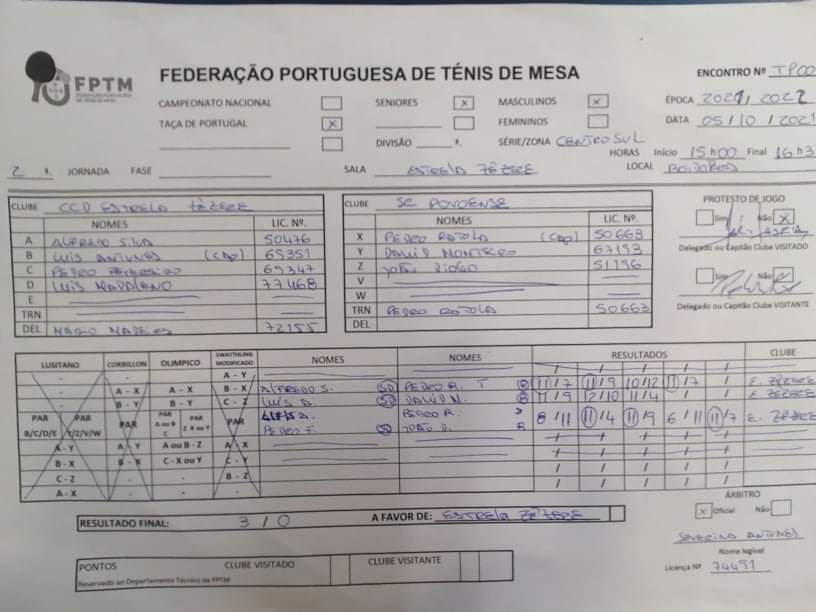 FPTM
FEDERAÇÃO PORTUGUESA DE TÉNIS DE MESA
FEDERAÇÃO PORTUGUESA DE TÉNIS DE MESA
ENCONTRO Nº TP00
CAMPEONATO NACIONAL SENIORES X MASCULINOS X ÉPOCA 2021/2022
TAÇA DE PORTUGAL X FEMININOS DATA 05/10/2021
DIVISÃO ª. SÉRIE/ZONA CENTRO SUL
HORAS Início 15h00 Final 16h3
2 ª. JORNADA FASE SALA ESTRELA ZÊZERE LOCAL
CLUBE CCD ESTRELA ZÊZERE
NOMES LIC. Nº.
A ALFREDO SILVA 50476
B LUIS ANTUNES (Cap) 69351
C PEDRO 69347
D LUIS MADALENO 77468
E
TRN
DEL 72155
CLUBE SC POVOENSE
NOMES LIC. Nº.
X PEDRO ROTOLA (Cap) 50663
Y DAVID MONTEIRO 67193
Z JOÃO DIOGO 51196
V
W
TRN PEDRO ROTOLA 50663
DEL
PROTESTO DE JOGO
Sim Não X
Delegado ou Capitão Clube VISITADO
Sim Não
Delegado ou Capitão Clube VISITANTE
LUSITANO CORBILLON OLIMPICO SWAYTHLING MODIFICADO NOMES NOMES RESULTADOS CLUBE
- - - A - Y
- A - X A - X B - X ALFREDO S. PEDRO R. 11/7 11/9 10/12 11/7 / E. ZÊZERE
- B - Y B - Y C - Z LUIS A. DAVID M. 11/9 12/10 11/4 E. ZÊZERE
PAR B/C/D/E Y/Z/V/W PAR PAR A ou B C PAR Z X ou Y PAR PEDRO R.
PEDRO F. JOÃO D. 8/11 11/4 11/9 6/11 11/7 E. ZÊZERE
A - Y A - Y A ou B - Z A - X
B - X B - X C - X ou Y C - Y
C - Z - B - Z
A - X - -
RESULTADO FINAL: 3 / 0 A FAVOR DE: ESTRELA ZÊZERE
ÁRBITRO
X Oficial Não
SEVERINO ANTUNES
Nome legível
Licença Nº 74491
PONTOS CLUBE VISITADO CLUBE VISITANTE
Reservado ao Departamento Técnico da FPTM